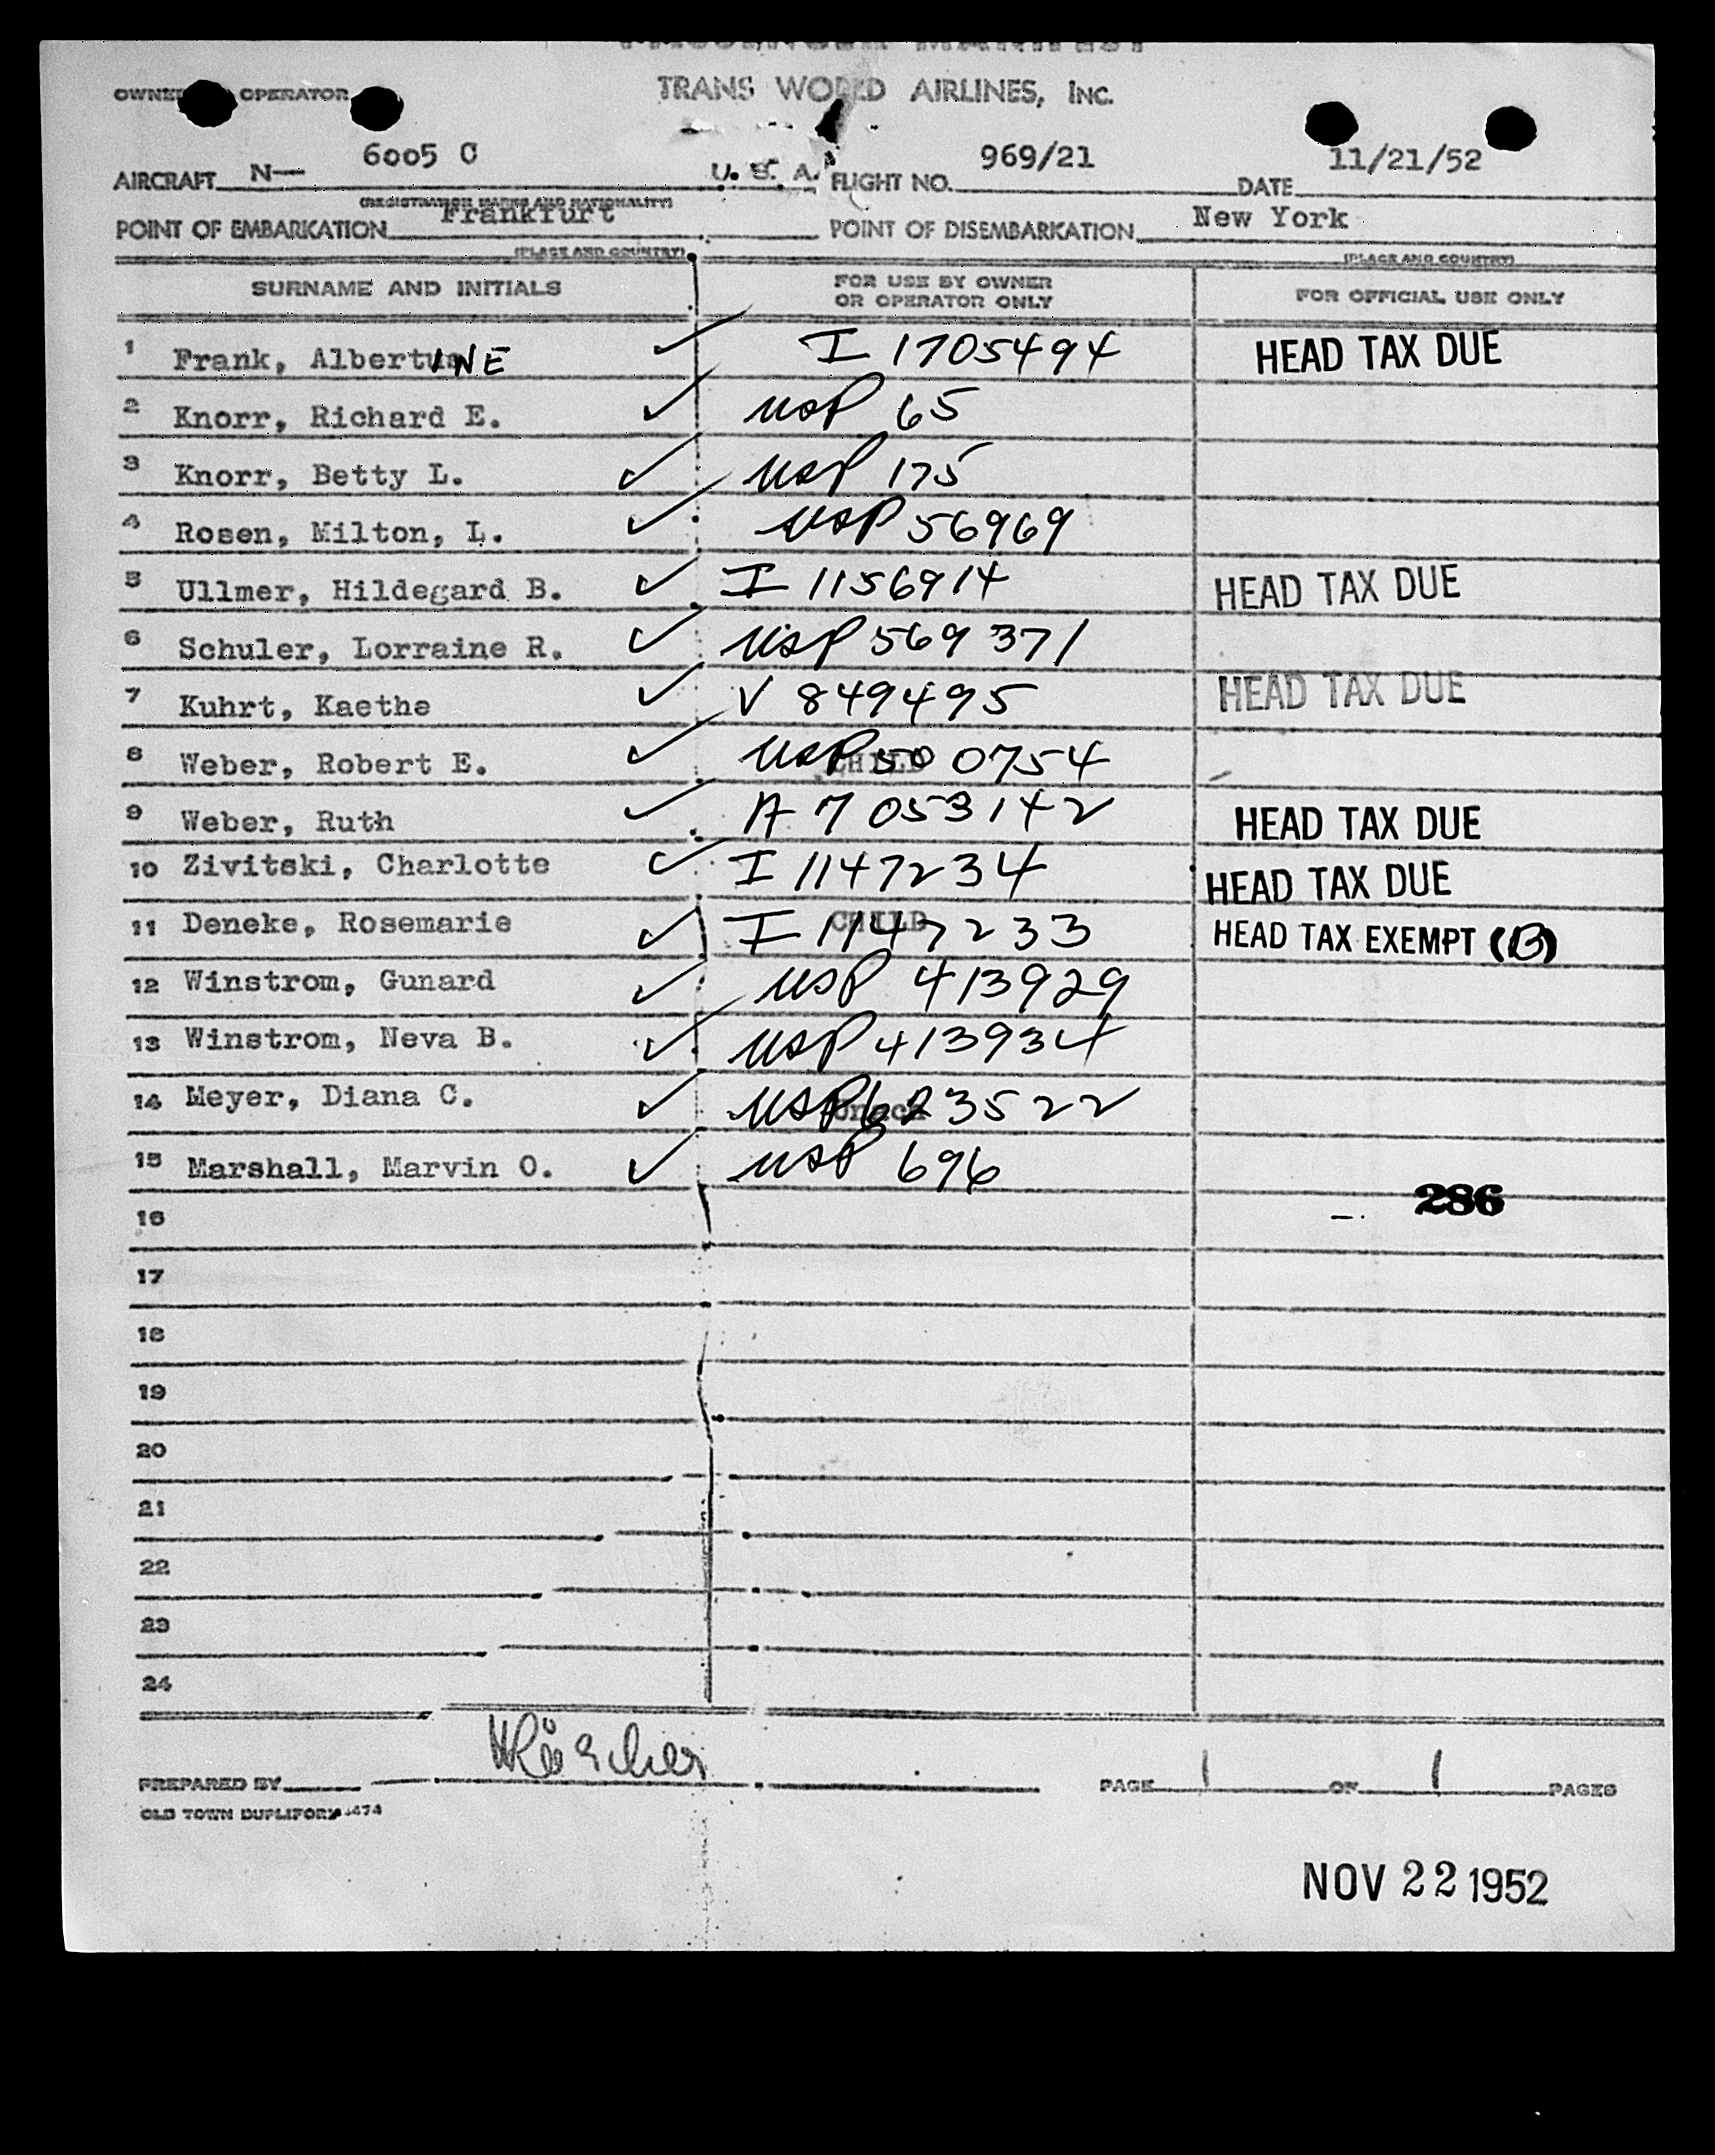 PASSENGER MANIFEST
OWNER OPERATOR TRANS WORLD AIRLINES, INC.
AIRCRAFT N— 6005 C U. S. A. FLIGHT NO. 969/21 DATE 11/21/52
(REGISTRATION MARKS AND NATIONALITY)
POINT OF EMBARKATION Frankfurt POINT OF DISEMBARKATION New York
(PLACE AND COUNTRY) (PLACE AND COUNTRY)
SURNAME AND INITIALS FOR USE BY OWNER OR OPERATOR ONLY FOR OFFICIAL USE ONLY
1 Frank, AlbertINE ✓ I 1705494 HEAD TAX DUE
2 Knorr, Richard E. ✓ USP 65
3 Knorr, Betty L. ✓ USP 175
4 Rosen, Milton, L. ✓ USP 56969
5 Ullmer, Hildegard B. ✓ I 1156914 HEAD TAX DUE
6 Schuler, Lorraine R. ✓ USP 569371
7 Kuhrt, Kaethe ✓ V 849495 HEAD TAX DUE
8 Weber, Robert E. ✓ CHILD USP 500754
9 Weber, Ruth ✓ A 7 053142 HEAD TAX DUE
10 Zivitski, Charlotte ✓ I 1147234 HEAD TAX DUE
11 Deneke, Rosemarie ✓ CHILD I 1147233 HEAD TAX EXEMPT (B)
12 Winstrom, Gunard ✓ USP 413929
13 Winstrom, Neva B. ✓ USP 413934
14 Meyer, Diana C. ✓ USP 623522
15 Marshall, Marvin O. ✓ USP 696
286
16
17
18
19
20
21
22
23
24
PREPARED BY PAGE 1 OF 1 PAGES
OLD TOWN DUPLIFORM-474
NOV 22 1952